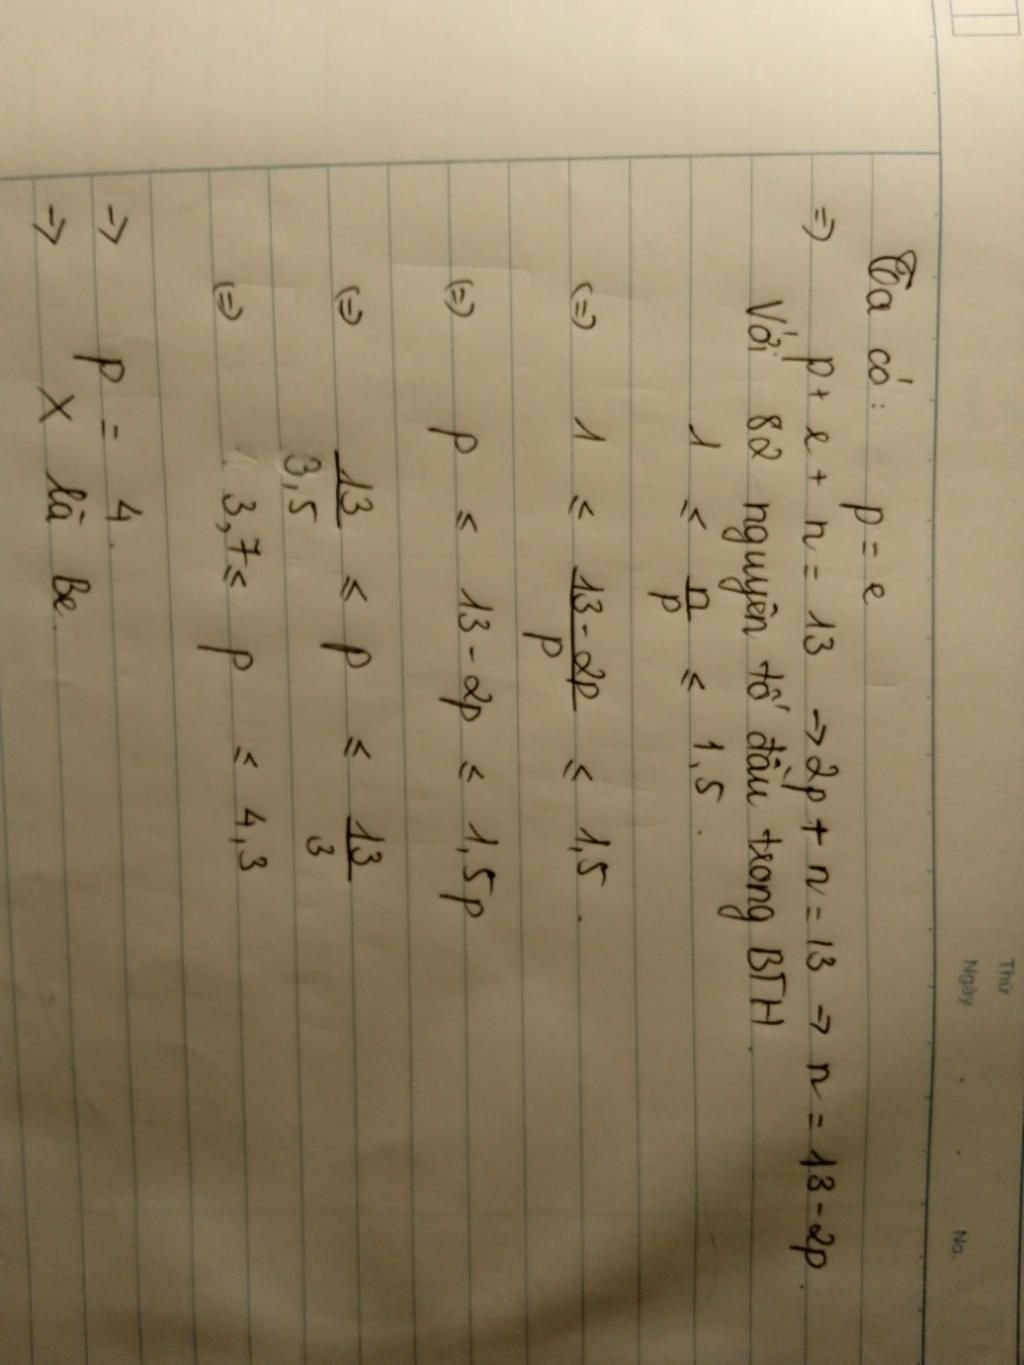 Thứ
Ngày . . No.
Ta có: p = e
=> p + e + n = 13 → 2p + n = 13 → n = 13 - 2p.
Với 82 nguyên tố đầu trong BTH.
1 ≤ n/p ≤ 1,5.
(=) 1 ≤ 13 - 2p/p ≤ 1,5.
(=) p ≤ 13 - 2p ≤ 1,5p
(=) 13/3,5 ≤ p ≤ 13/3
(=) 3,7 ≤ p ≤ 4,3
→ p = 4.
→ X là Be.